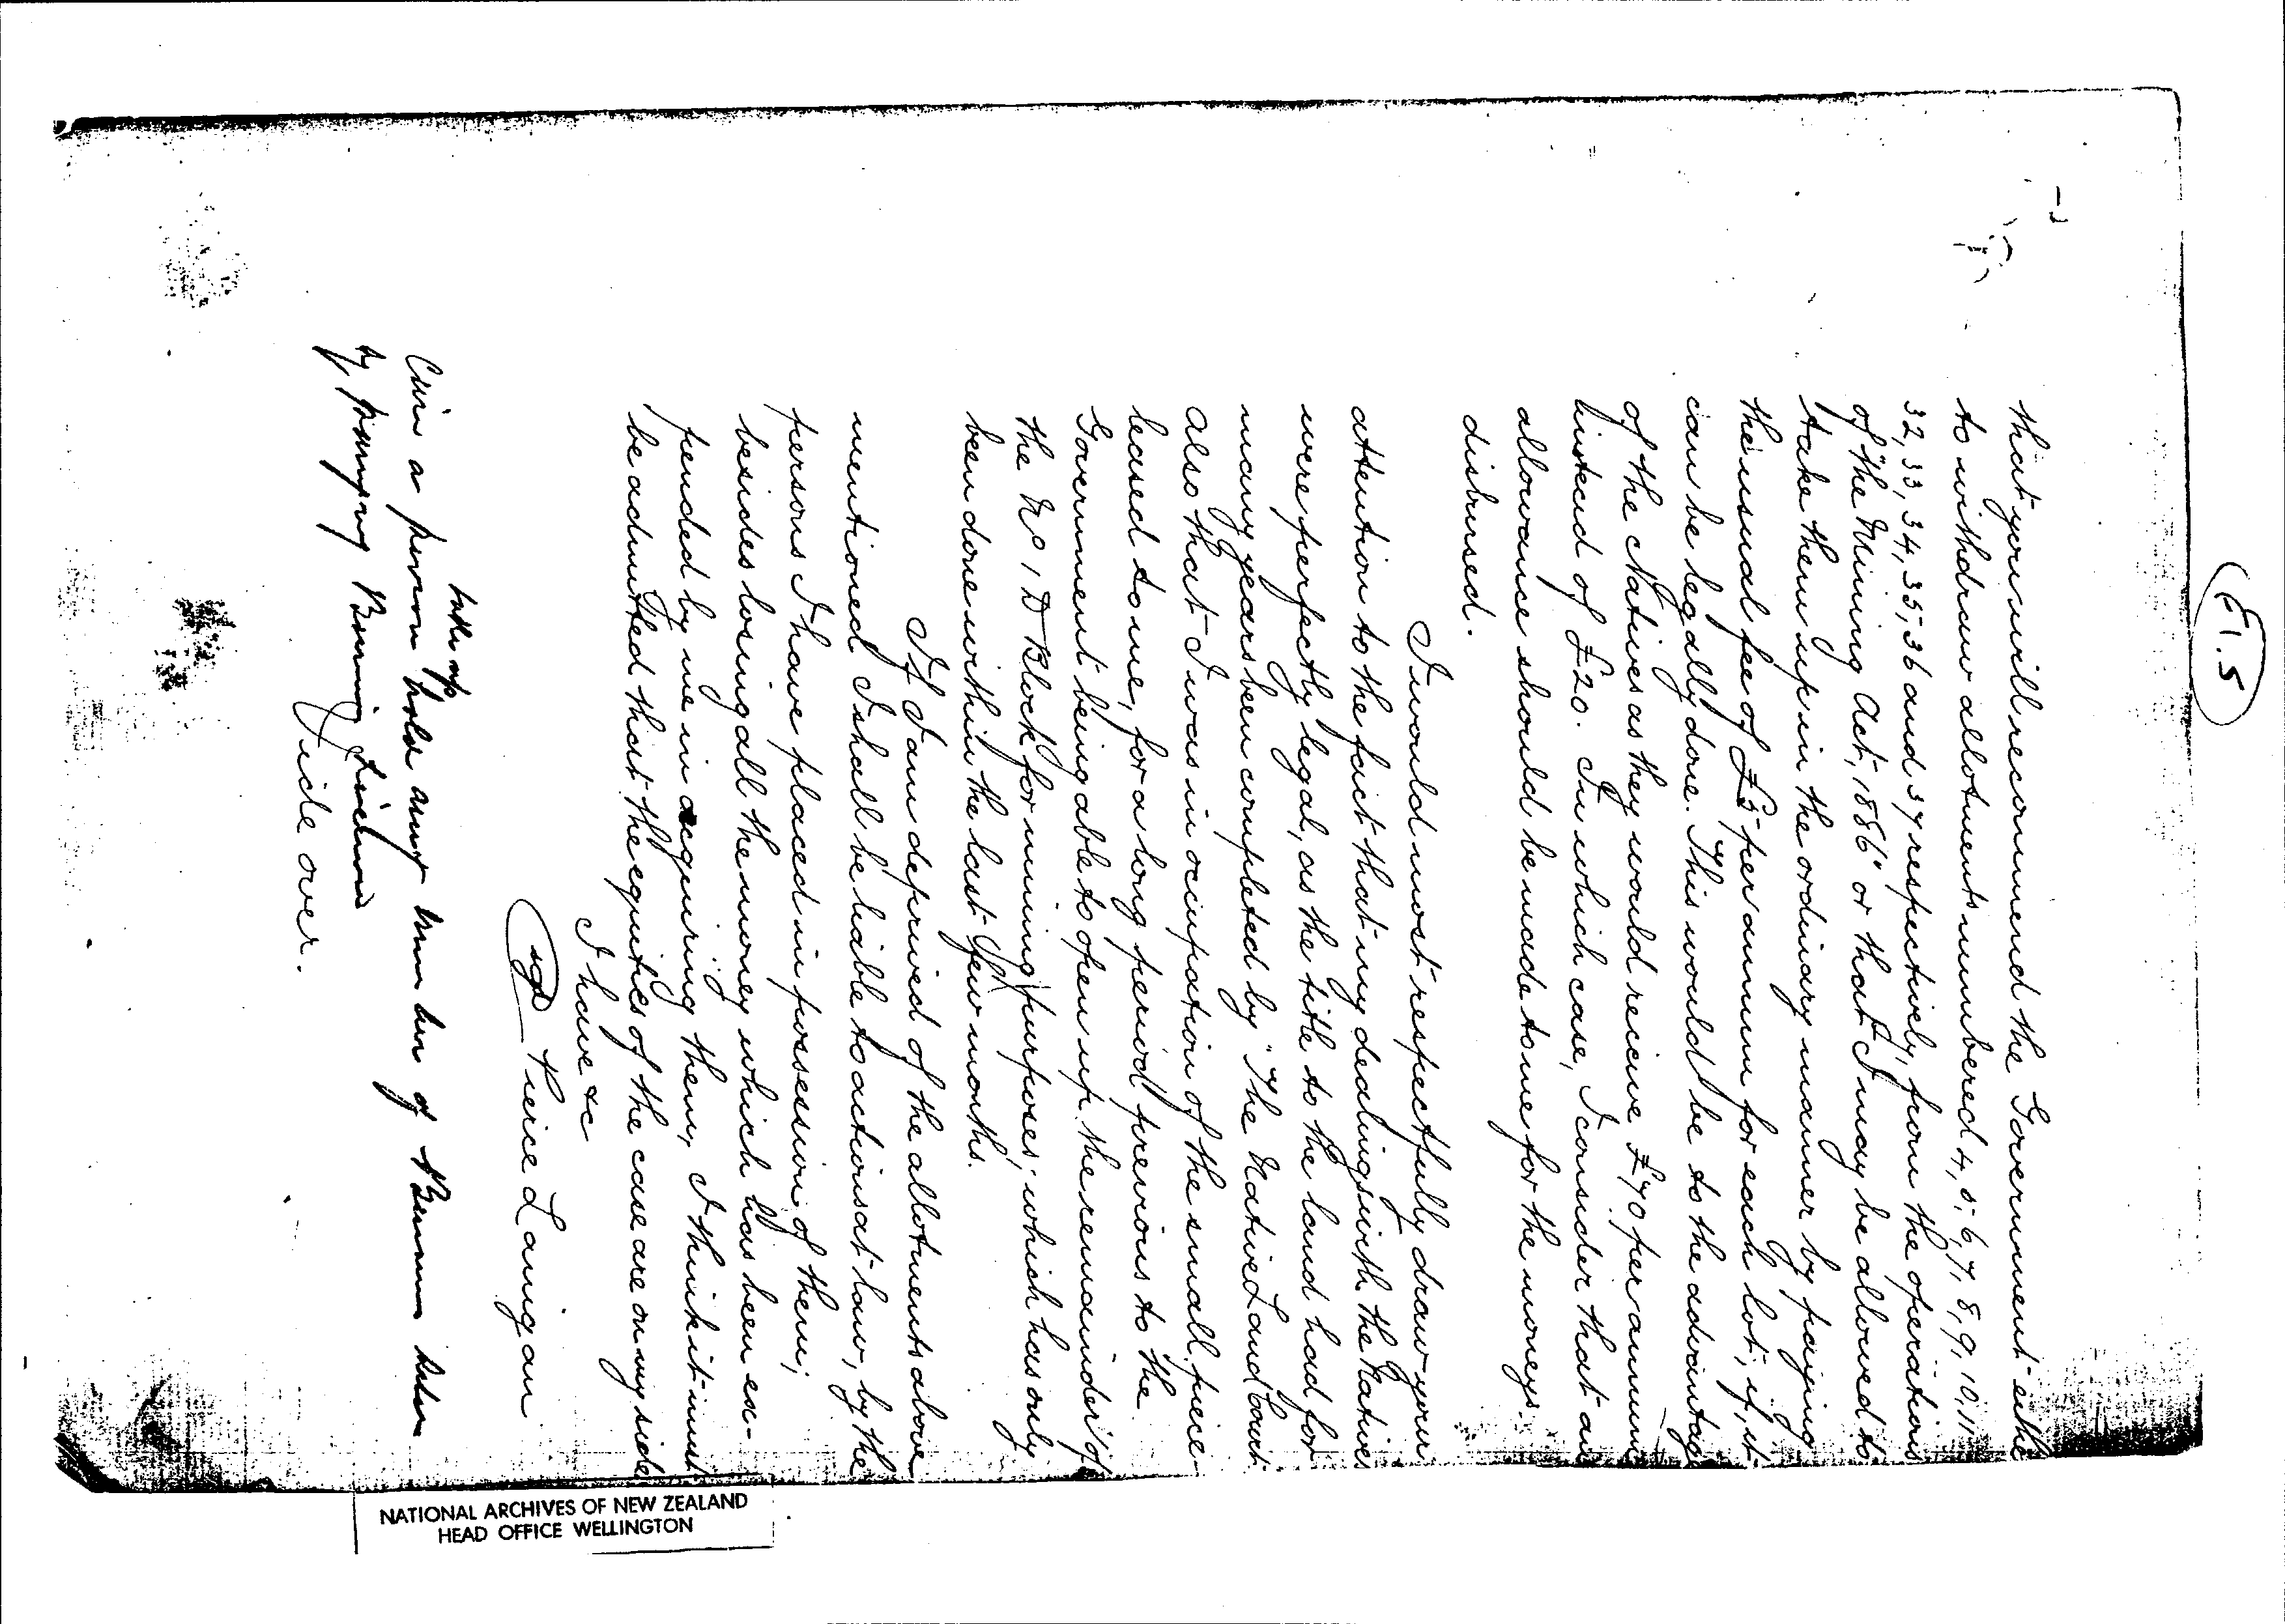 E1.5
that you will recommend the Government eithe
to withdraw allotments numbered 4, 5, 6, 7, 8, 9, 10, 11
32, 33, 34, 35, 36 and 37 respectively, from the operations
of "the Mining Act, 1886" or that I may be allowed to
take them up in the ordinary manner by paying
the usual fee of £5 per annum for each lot; if, it
can be legally done. This would be to the advantage
of the Natives as they would receive £70 per annum
instead of £20. In which case, I consider that an
allowance should be made to me for the moneys
disbursed.
I would most respectfully draw your
attention to the fact that my dealings with the Natives
were perfectly legal, as the title to the land had for
many years been completed by "The Native Land Court
also that I was in occupation of the small piece
leased to me, for a long period previous to the
Government being able to open up the remainder of
the No 1 D Block for mining purposes; which has only
been done within the last few months.
If I am deprived of the allotments above
mentioned I shall be liable to actions at law, by the
persons I have placed in possession of them;
besides losing all the money which has been ex-
pended by me in acquiring them, I think it must
be admitted that the equities of the case are on my side
I have &c
Pierce Lanigan
take up
Can a person hold any number of
by paying
Vide over.
NATIONAL ARCHIVES OF NEW ZEALAND
HEAD OFFICE WELLINGTON